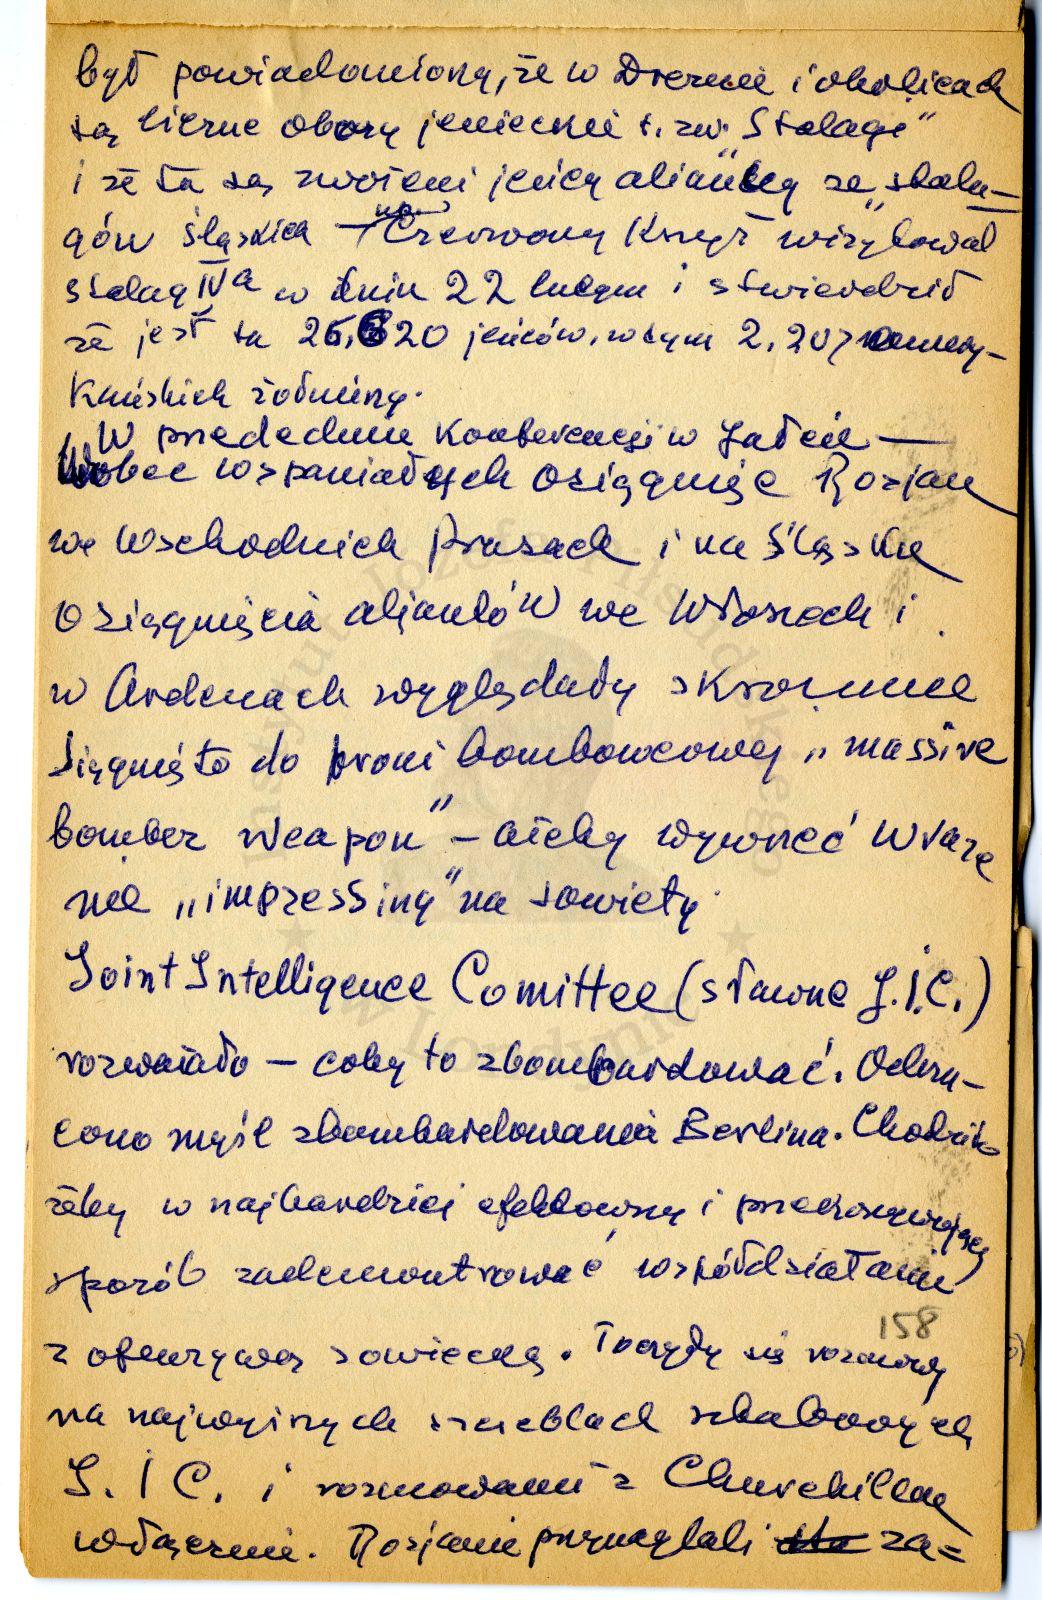 był powiadomiony, że w Dreznie i okolicach
są liczne obozy jenieckie t. zw. "Stalagi"
i że tu są zwożeni jeńcy alianccy ze "stala-
gów śląskich - np. Czerwony Krzyż wizytował
stalag IVa w dniu 22 lutym i stwierdził
że jest tu 26,620 jeńców, w tym 2,207 amery-
kańskich żołnierzy.
W przededniu Konferencji w Jałcie —
Wobec wspaniałych osiągnięć Rosjan
we Wschodnich Prusach i na Śląsku
osiągnięcia aliantów we Włoszech i
w Ardenach wyglądały skromnie
Sięgnięto do broni bombowcowej „massive
bomber weapon" – ażeby wywrzeć wraże
nie „impressing" na sowiety.
Joint Intelligence Comittee (sławne J.I.C.)
rozważało — coby to zbombardować. Odrzu-
cono myśl zbombardowania Berlina. Chodziło
żeby w najbardziej efektowny i przekonywujący
sposób zademontrować współdziałanie
z ofenzywą sowiecką. Toczyły się rozmowy
158
na najwyższych szczeblach sztabowych
J. I C. i rozmowami z Churchillem
włącznie. Rosjanie przynaglali za=